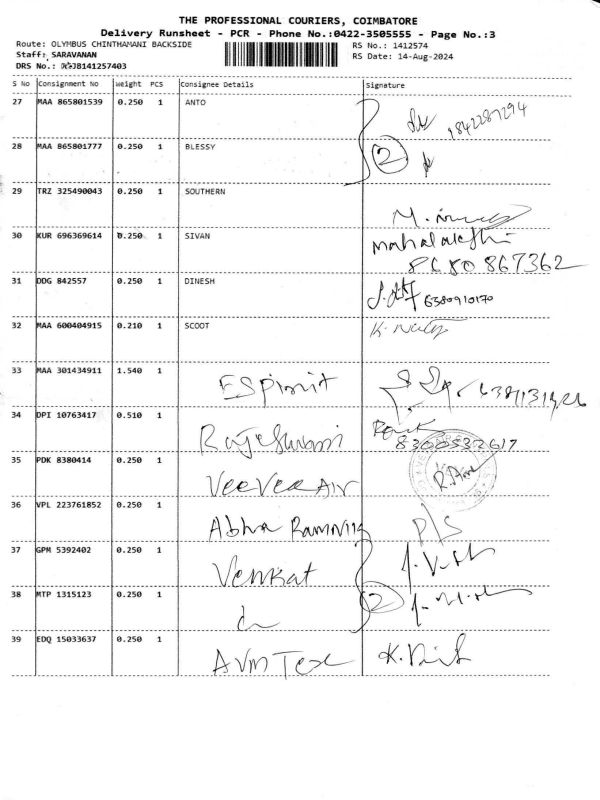 THE PROFESSIONAL COURIERS, COIMBATORE
Delivery Runsheet - PCR - Phone No.:0422-3505555 - Page No.:3
Route: OLYMBUS CHINTHAMANI BACKSIDE RS No.: 1412574
Staff: SARAVANAN RS Date: 14-Aug-2024
DRS No.: J8141257403
S No Consignment No Weight PCS Consignee Details Signature
27 MAA 865801539 0.250 1 ANTO
28 MAA 865801777 0.250 1 BLESSY 2
29 TRZ 325490043 0.250 1 SOUTHERN
30 KUR 696369614 0.250 1 SIVAN mahalakshmi
31 DDG 842557 0.250 1 DINESH 6380910170
32 MAA 600404915 0.210 1 SCOOT
33 MAA 301434911 1.540 1
34 DPI 10763417 0.510 1 8300532617
35 PDK 8380414 0.250 1 VeeVee Air
36 VPL 223761852 0.250 1 Abha P/S
37 GPM 5392402 0.250 1 Venkat
38 MTP 1315123 0.250 1 2
39 EDQ 15033637 0.250 1 AVM Tex